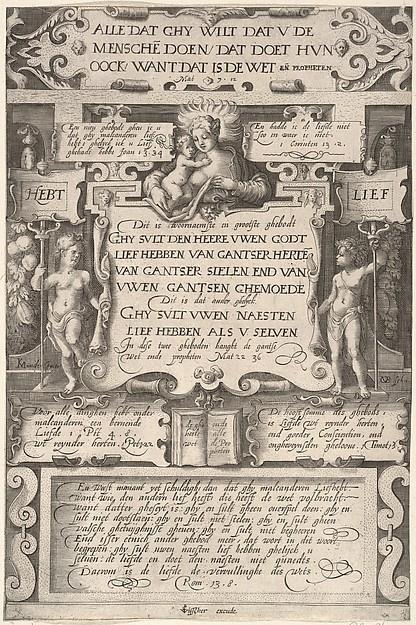 ALLE DAT GHY WILT DAT V DE
MENSCHĒ DOEN / DAT DOET HVN
OOCK / WANT DAT IS DE WET EÑ PROPHETEN
Mat 7. 12
Een nieu ghebodt gheve ic u
dat ghy malcanderen lief
hebt ghelijck ick u lief
ghehadt hebbe Joan 13.34
En hadde ic de liefde niet
soo en waer ic niet.
1 Corinten 13.2.
HEBT
LIEF
Dit is 't voornaemste en grootste ghebodt
GHY SVLT DEN HEERE VWEN GODT
LIEF HEBBEN VAN GANTSER HERTĒ
VAN GANTSER SIELEN END VAN
VWEN GANTSEN GHEMOEDE
Dit is dat ander ghelijck
GHY SVLT VWEN NAESTEN
LIEF HEBBEN ALS V SELVEN
In dese twee gheboden hanght de gantse
Wet ende propheten Mat 22 36
Voor alle dinghen hebt onder
malcanderen een bernende
Liefde 1 Pet 4. 8
wt reynder herten. 1 Pet 1.22
De hooft somme des ghebods
is Liefde wt reynder herten
end goeder Conscientien, end
ongheveynsden gheloove. 1 Timot 1.5
En weest niemant yet schuldigh dan dat ghy malcanderen Liefhebt.
Want wie den andern lief heeft die heeft de wet volbracht.
Want datter gheseyt is: ghy en sult gheen overspel doen: ghy en
sult niet dootslaen: ghy en sult niet stelen: ghy en sult gheen
valsche ghetuyghnisse gheven: ghy en sult niet begheeren
End isser eenich ander ghebod meer, dat wort in dit woort
begrepen: ghy sult uwen naesten lief hebben ghelijck u
selven: de liefde en doet den naesten niet quaedts.
Daerom is de liefde de vervullinghe des Wets
Rom 13. 8.
CJVisscher excude.